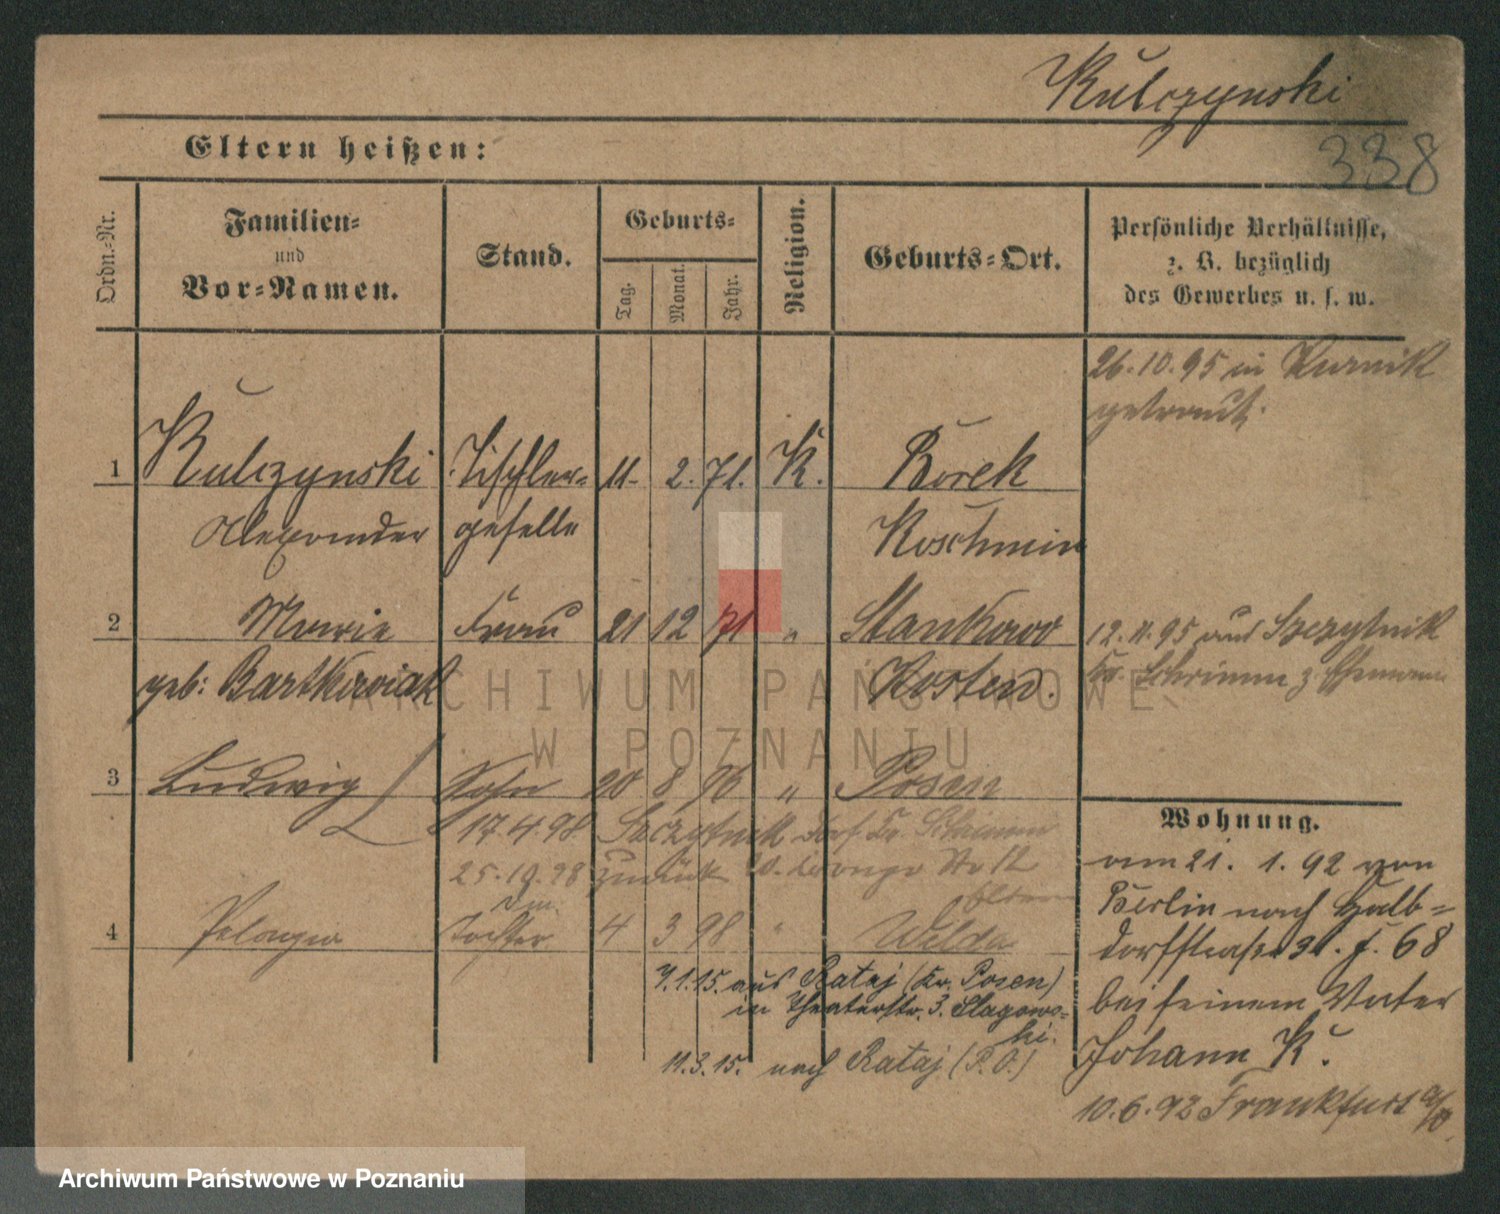 Kulczynski
338
Eltern heißen:
Ordn.=Nr.
Familien=
und
Vor=Namen.
Stand.
Geburts=
Tag.
Monat.
Jahr.
Religion.
Geburts=Ort.
Persönliche Verhältnisse,
z. B. bezüglich
des Gewerbes u. s. w.
26.10.95 in Kurnik
getraut.
1 Kulczynski Tischler= 11. 2. 71. K. Borek
Alexander geselle Koschmin
2 Marie Frau 21 12 71 " Stankowo
geb: Bartkowiak Kosten.
12.11.95 aus Szczytnik
Kr. Schrimm z. Ehemann
3 Ludwig Sohn 20 8 96 " Posen
17.4.98 Szczytnik Dorf Kr. Schrimm
25.10.98 zurück No 12
4 Pelagia Tochter 4 3 98 " Welda
7.1.15. aus Rataj (Kr. Posen)
in Theaterstr. 3. Slagows=
ki.
11.3.15. nach Rataj (P.O.)
Wohnung.
am 21. 1. 92 von
Berlin nach Halb=
dorfstraße 31. f. 68
bei seinem Vater
Johann K.
10.6.92 Frankfurt a/O.
ARCHIWUM PAŃSTWOWE
W POZNANIU
Archiwum Państwowe w Poznaniu